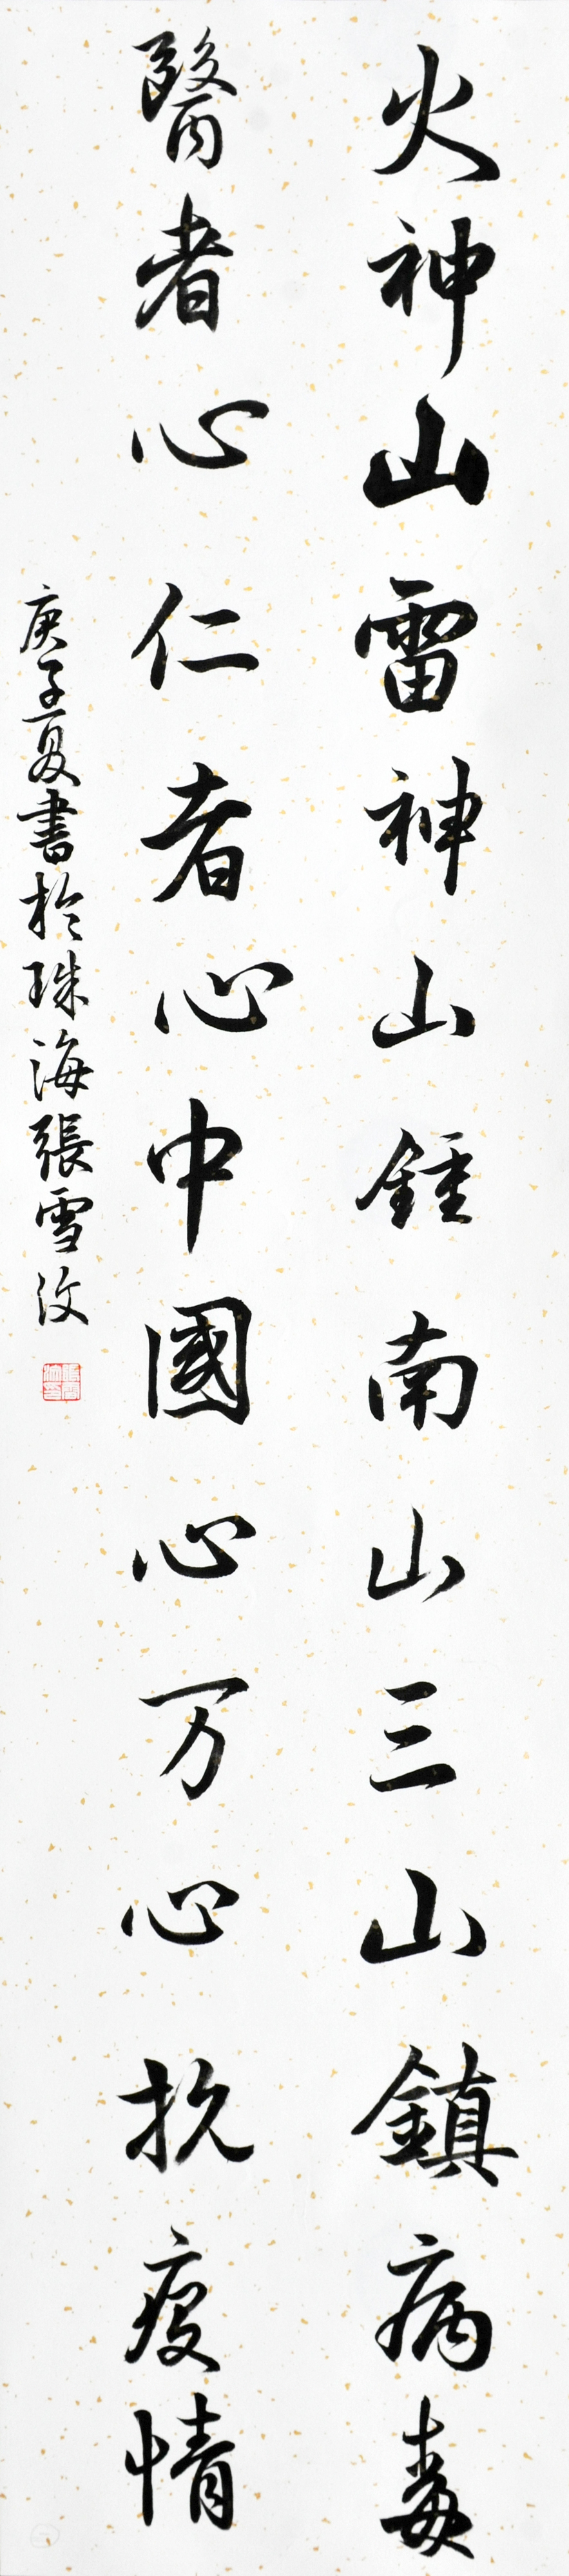 火神山雷神山鍾南山三山鎮病毒
醫者心仁者心中國心万心抗疫情
庚子夏書於珠海張雪汶